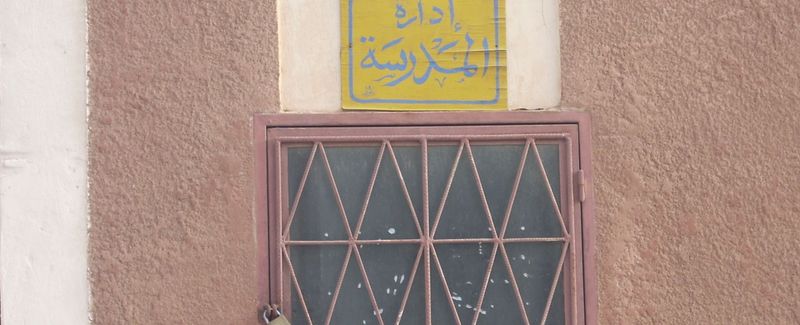 إدارة
المدرسة